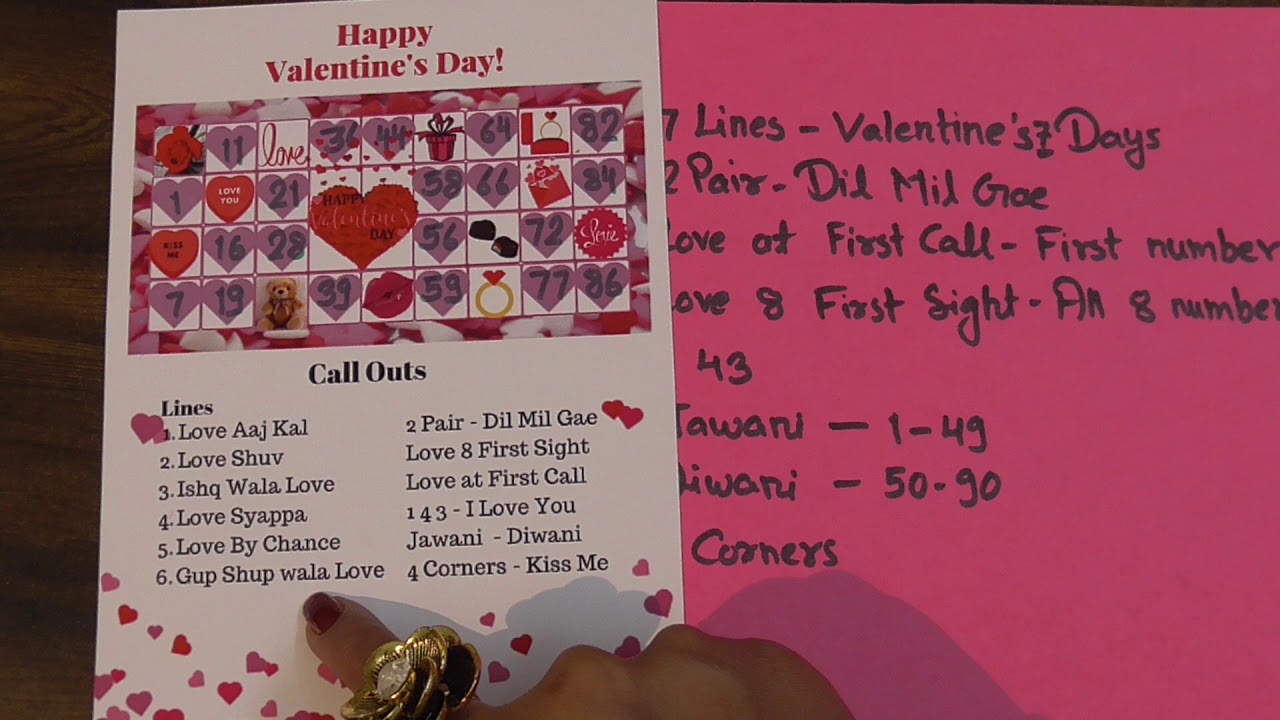 Happy
Valentine's Day!
11 love 36 44 64 82
1 LOVE YOU 21 58 66 84
HAPPY
Valentine's
DAY
KISS ME 16 28 56 72 Love
7 19 39 59 77 86
Call Outs
Lines
1. Love Aaj Kal
2. Love Shuv
3. Ishq Wala Love
4. Love Syappa
5. Love By Chance
6. Gup Shup wala Love
2 Pair - Dil Mil Gae
Love 8 First Sight
Love at First Call
1 4 3 - I Love You
Jawani - Diwani
4 Corners - Kiss Me
7 Lines - Valentine's 7 Days
2 Pair - Dil Mil Gae
Love at First Call - First number
Love 8 First Sight - All 8 number
43
Jawani - 1-49
Diwani - 50-90
Corners